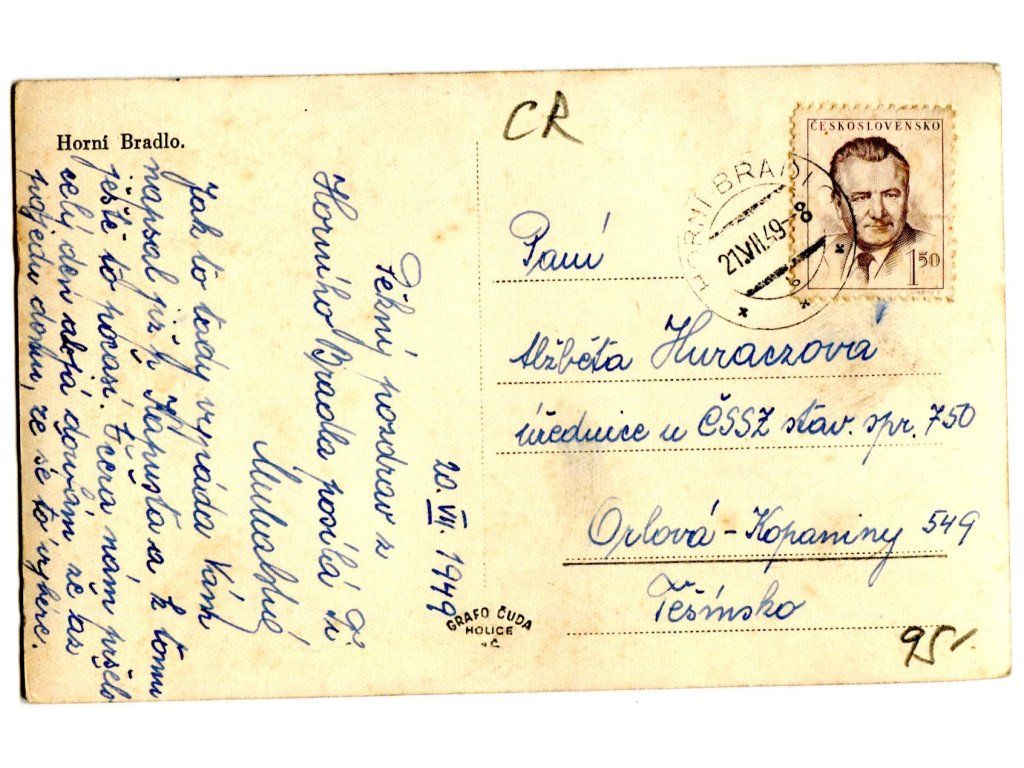 Horní Bradlo.
CR
ČESKOSLOVENSKO
1 50
HORNÍ BRADLO
21.VII.49-8
Paní
Alžběta Huraczová
úřednice u ČSSZ stav. spr. 750
Orlová-Kopaniny 549
Těšínsko
95.-
GRAFO ČUDA
HOLICE
20. VII. 1949
Pěkný pozdrav z
Horního Bradla posílá
Jak to tady vypádá Vám
napsal již h. Kapusta a k tomu
ještě to počasí. Včera nám pršelo
celý den a já doufám že as
pojedu domu, že se to vybere.